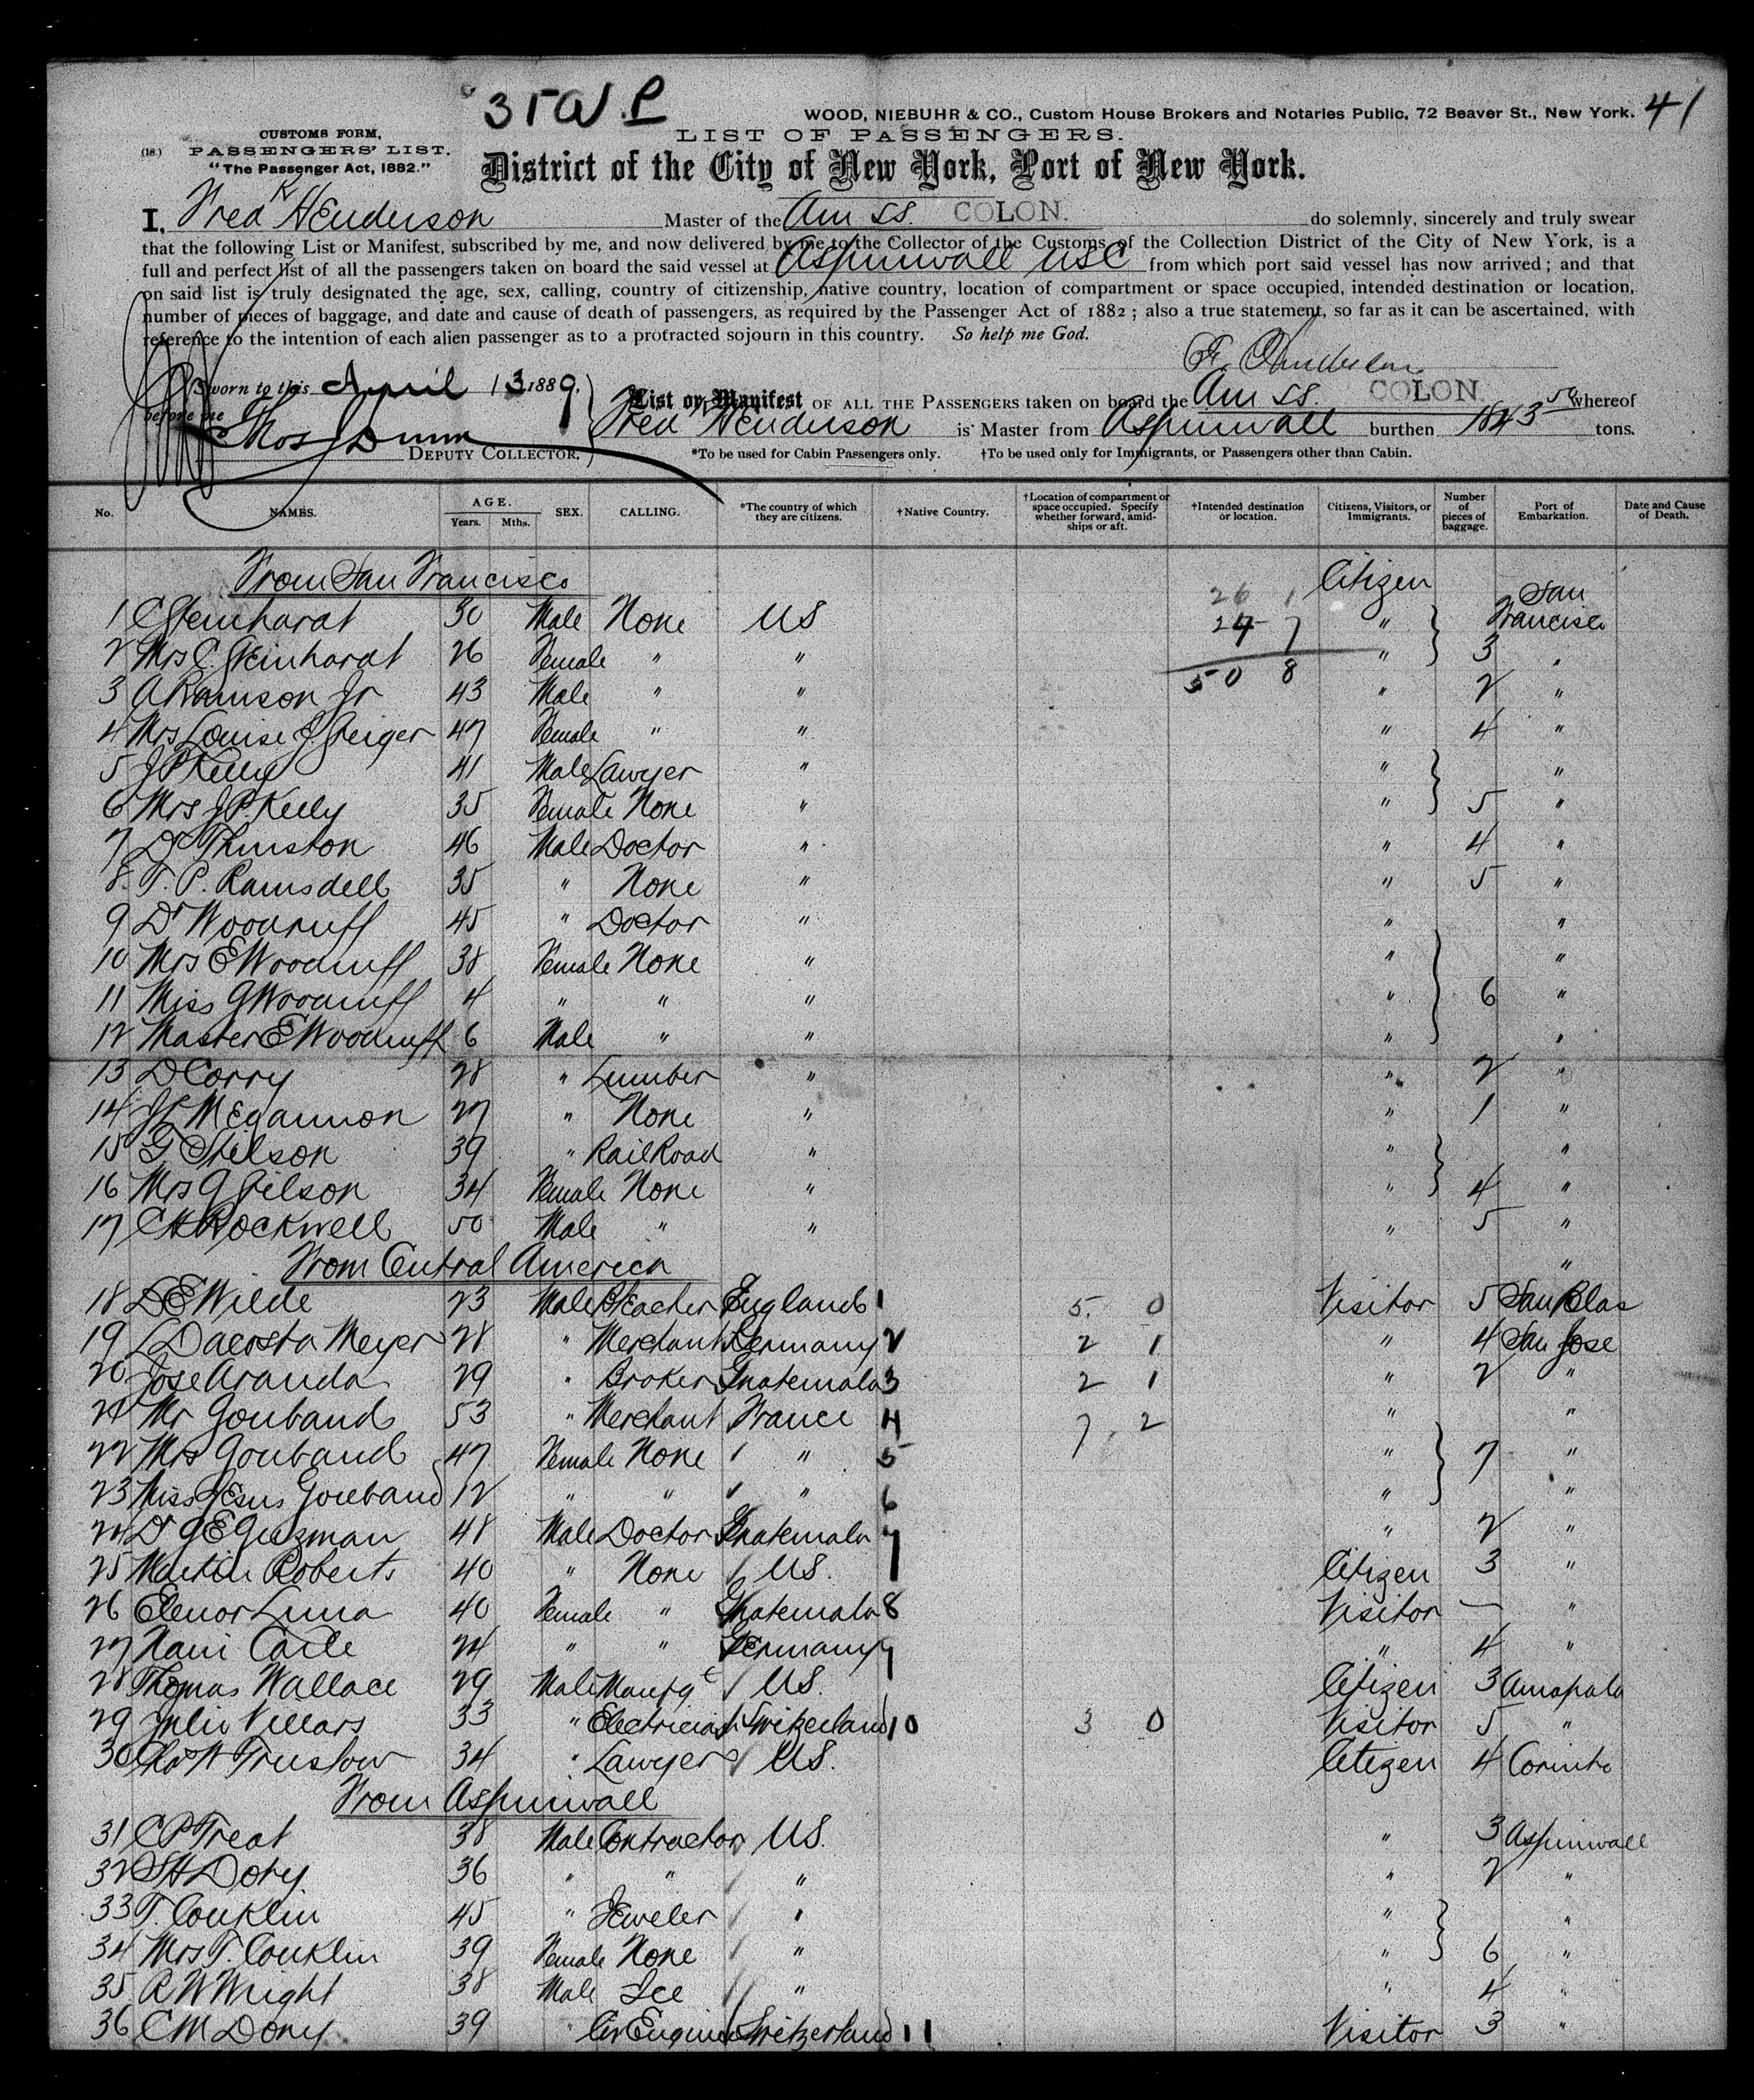 35 W.P
WOOD, NIEBUHR & CO., Custom House Brokers and Notaries Public, 72 Beaver St., New York. 41
LIST OF PASSENGERS.
(18.) CUSTOMS FORM,
PASSENGERS' LIST.
"The Passenger Act, 1882."
District of the City of New York, Port of New York.
I, Fred K Henderson Master of the Am SS. COLON. do solemnly, sincerely and truly swear
that the following List or Manifest, subscribed by me, and now delivered by me to the Collector of the Customs of the Collection District of the City of New York, is a
full and perfect list of all the passengers taken on board the said vessel at Aspinwall USC from which port said vessel has now arrived; and that
on said list is truly designated the age, sex, calling, country of citizenship, native country, location of compartment or space occupied, intended destination or location,
number of pieces of baggage, and date and cause of death of passengers, as required by the Passenger Act of 1882; also a true statement, so far as it can be ascertained, with
reference to the intention of each alien passenger as to a protracted sojourn in this country. So help me God.
Sworn to this April 13 1889,
before me
Thos J Dunn
DEPUTY COLLECTOR.
List or Manifest OF ALL THE PASSENGERS taken on board the Am SS. COLON. whereof
Fred K Henderson is Master from Aspinwall burthen 1843 50 tons.
*To be used for Cabin Passengers only. †To be used only for Immigrants, or Passengers other than Cabin.
No. NAMES. AGE. Years. Mths. SEX. CALLING. *The country of which they are citizens. †Native Country. †Location of compartment or space occupied. Specify whether forward, amidships or aft. †Intended destination or location. Citizens, Visitors, or Immigrants. Number of pieces of baggage. Port of Embarkation. Date and Cause of Death.
From San Francisco Citizen
26 1
1 C Steinhardt 30 Male None US 24 7 " San Francisco
2 Mrs C. Steinhardt 26 Female " " " 3 "
50 8
3 A Ramson Jr 43 Male " " " 2 "
4 Mrs Louise J Steiger 47 Female " " " 4 "
5 J P Kelly 41 Male Lawyer " " "
6 Mrs J P. Kelly 35 Female None " " 5 "
7 Dr Thurston 46 Male Doctor " " 4 "
8 T. P. Ramsdell 35 " None " " 5 "
9 Dr Woodruff 45 " Doctor " " "
10 Mrs E Woodruff 38 Female None " " "
11 Miss G Woodruff 4 " " " " 6 "
12 Master E Woodruff 6 Male " " " "
13 D Corry 28 " Lumber " " 2 "
14 Megannon 27 " None " " 1 "
15 G. Stilson 39 " RailRoad " " "
16 Mrs G Stilson 34 Female None " " 4 "
17 C H Rockwell 50 Male " " " 5 "
From Central America "
18 D E Wilde 23 Male Teacher England 1 5 0 Visitor 5 San Blas
19 L Dacosta Meyer 28 " Merchant Germany 2 2 1 " 4 San Jose
20 Jose Aranda 29 " Broker Guatemala 3 2 1 " 2 "
21 Mr Goubaud 53 " Merchant France 4 7 2 " "
22 Mrs Goubaud 47 Female None " 5 " 7 "
23 Miss Jesus Goubaud 12 " " " 6 " "
24 Dr G E Guzman 48 Male Doctor Guatemala 7 " 2 "
25 Martin Roberts 40 " None US. Citizen 3 "
26 Elenor Luna 40 Female " Guatemala 8 Visitor — "
27 Nani Carle 24 " " Germany 9 " 4 "
28 Thomas Wallace 29 Male US. Citizen 3 Amapala
29 Julio Villars 33 " Electrician Switzerland 10 3 0 Visitor 5 "
30 Chas W Truslow 34 " Lawyer US. Citizen 4 Corinto
From Aspinwall
31 C P Treat 38 Male Contractor US. " 3 Aspinwall
32 S H Doty 36 " " " " 2 "
33 T. Conklin 45 " Jeweler " " "
34 Mrs T. Conklin 39 Female None " " 6 "
35 R W Wright 38 Male Ice " " 4 "
36 C M Dony 39 Civ Engineer Switzerland 11 Visitor 3 "